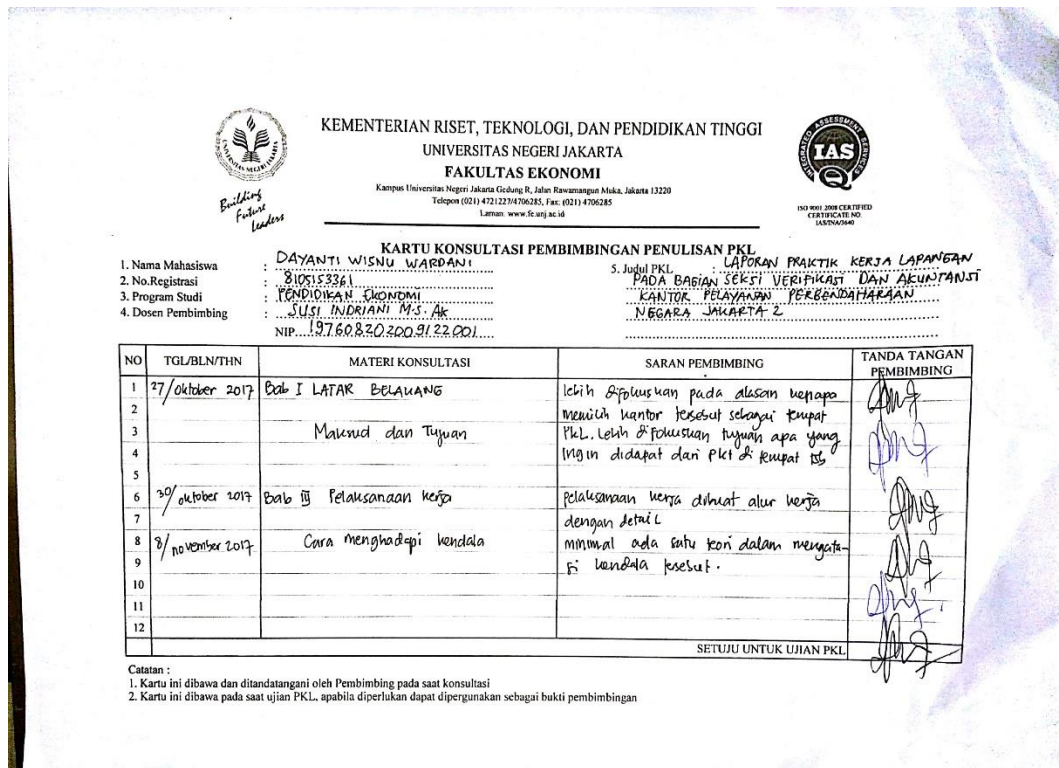 KEMENTERIAN RISET, TEKNOLOGI, DAN PENDIDIKAN TINGGI
UNIVERSITAS NEGERI JAKARTA
FAKULTAS EKONOMI
Kampus Universitas Negeri Jakarta Gedung R, Jalan Rawamangun Muka, Jakarta 13220
Telepon (021) 4721227/4706285, Fax: (021) 4706285
Laman: www.fe.unj.ac.id
Building
Future
Leaders
INTEGRATED ASSESSMENT SERVICES
IAS
ISO 9001:2008 CERTIFIED
CERTIFICATE NO.
IAS/INA/3640
KARTU KONSULTASI PEMBIMBINGAN PENULISAN PKL
1. Nama Mahasiswa : DAYANTI WISNU WARDANI
2. No.Registrasi : 8105153361
3. Program Studi : PENDIDIKAN EKONOMI
4. Dosen Pembimbing : SUSI INDRIANI M.S. Ak
NIP. 197608202009122001
5. Judul PKL : LAPORAN PRAKTIK KERJA LAPANGAN
PADA BAGIAN SEKSI VERIFIKASI DAN AKUNTANSI
KANTOR PELAYANAN PERBENDAHARAAN
NEGARA JAKARTA 2
NO TGL/BLN/THN MATERI KONSULTASI SARAN PEMBIMBING TANDA TANGAN PEMBIMBING
1 27/Oktober 2017 Bab I LATAR BELAKANG lebih difokuskan pada alasan kenapa
2 memilih kantor tersebut sebagai tempat
3 Maksud dan Tujuan PKL. Lebih difokuskan tujuan apa yang
4 ingin didapat dari PKL di tempat tsb
5
6 30/oktober 2017 Bab III Pelaksanaan kerja pelaksanaan kerja dibuat alur kerja
7 dengan detail
8 8/november 2017 Cara menghadapi kendala minimal ada satu teori dalam mengata-
9 si kendala tersebut.
10
11
12
SETUJU UNTUK UJIAN PKL
Catatan :
1. Kartu ini dibawa dan ditandatangani oleh Pembimbing pada saat konsultasi
2. Kartu ini dibawa pada saat ujian PKL, apabila diperlukan dapat dipergunakan sebagai bukti pembimbingan